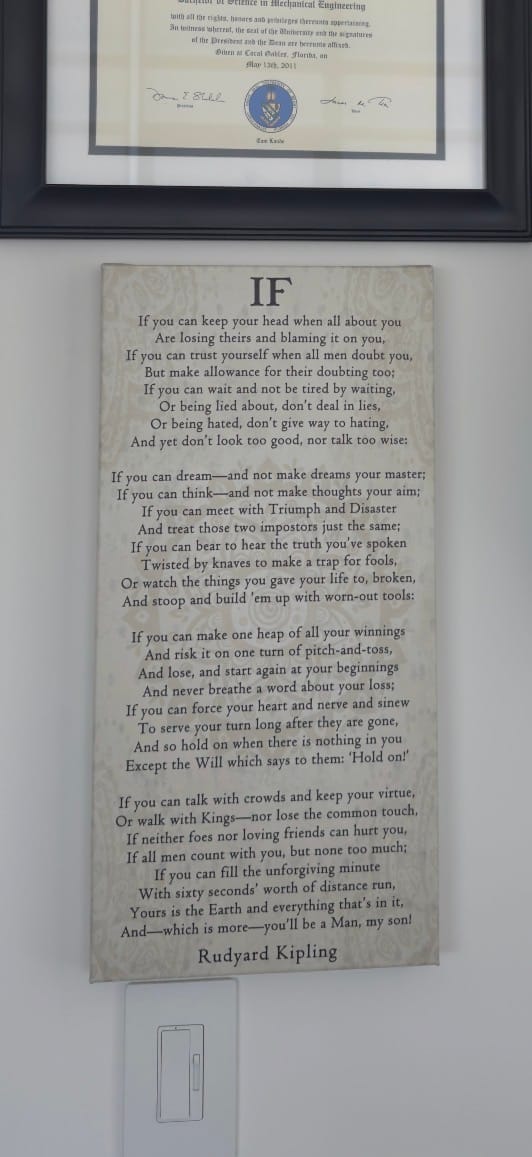 Bachelor of Science in Mechanical Engineering
with all the rights, honors and privileges thereunto appertaining.
In witness whereof, the seal of the University and the signatures
of the President and the Dean are hereunto affixed.
Given at Coral Gables, Florida, on
May 13th, 2011
President
Dean
IF
If you can keep your head when all about you
Are losing theirs and blaming it on you,
If you can trust yourself when all men doubt you,
But make allowance for their doubting too;
If you can wait and not be tired by waiting,
Or being lied about, don't deal in lies,
Or being hated, don't give way to hating,
And yet don't look too good, nor talk too wise:
If you can dream—and not make dreams your master;
If you can think—and not make thoughts your aim;
If you can meet with Triumph and Disaster
And treat those two impostors just the same;
If you can bear to hear the truth you've spoken
Twisted by knaves to make a trap for fools,
Or watch the things you gave your life to, broken,
And stoop and build 'em up with worn-out tools:
If you can make one heap of all your winnings
And risk it on one turn of pitch-and-toss,
And lose, and start again at your beginnings
And never breathe a word about your loss;
If you can force your heart and nerve and sinew
To serve your turn long after they are gone,
And so hold on when there is nothing in you
Except the Will which says to them: 'Hold on!'
If you can talk with crowds and keep your virtue,
Or walk with Kings—nor lose the common touch,
If neither foes nor loving friends can hurt you,
If all men count with you, but none too much;
If you can fill the unforgiving minute
With sixty seconds' worth of distance run,
Yours is the Earth and everything that's in it,
And—which is more—you'll be a Man, my son!
Rudyard Kipling